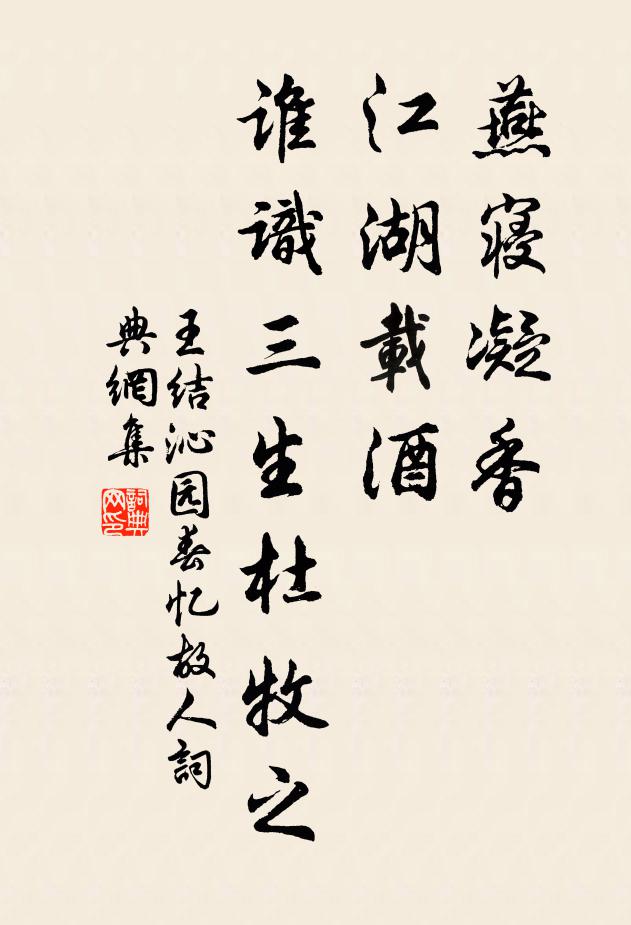 燕寝凝香
江湖載酒
誰識三生杜牧之
王结沁园春忆故人詞
典網集
詞典网印